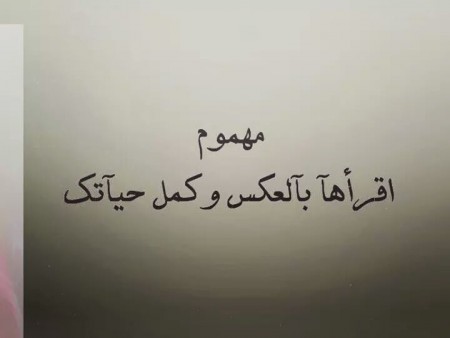 مهموم
اقرأهآ بآلعكس وكمل حيآتك